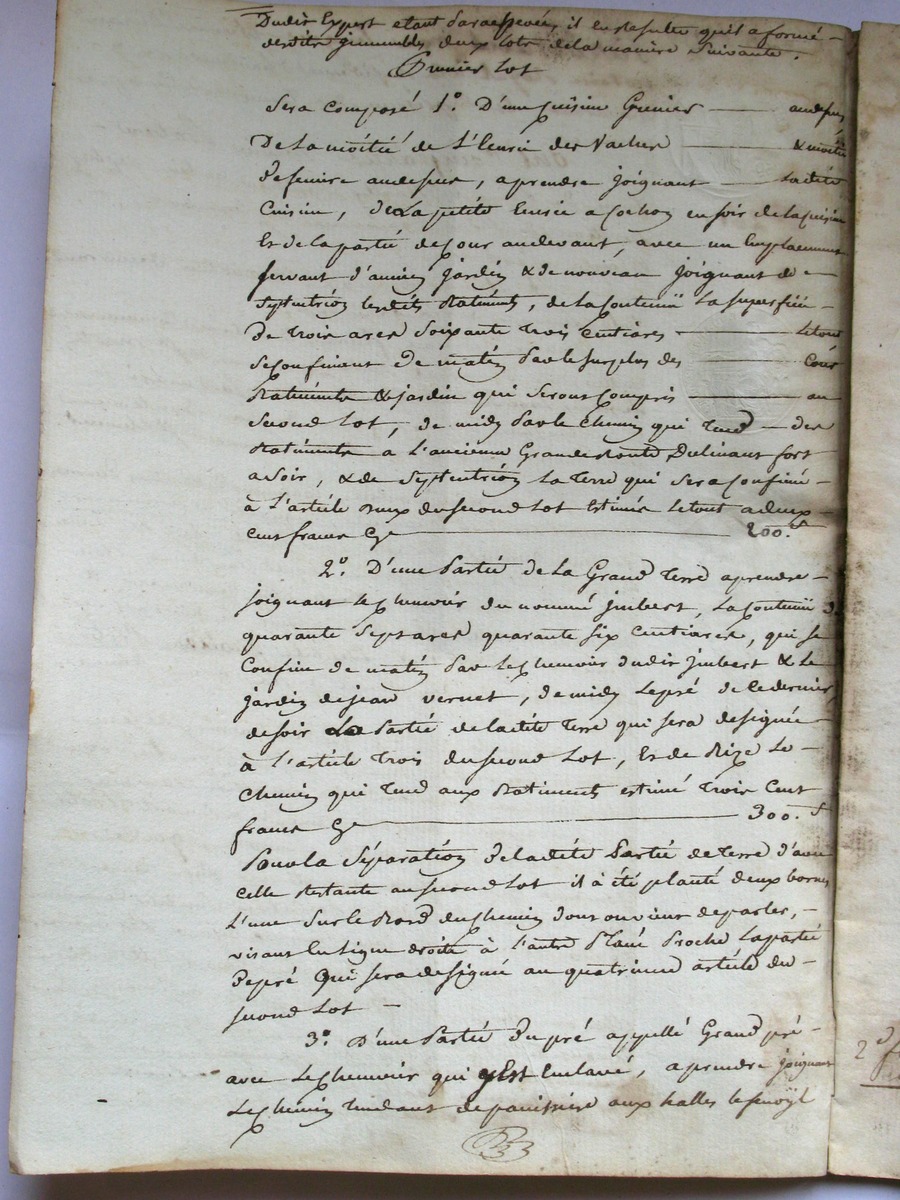 Dudit Expert etant parachevée, il en resulte qu'il a formé
desdits immeubles deux lots de la maniere suivante.
Premier Lot
Sera composé 1.° D'une cuisine Grenier — audessus
De la moitié de L'Ecurie des Vaches — & moitié
De feniere audessus, a prendre joignant — Ladite
Cuisine, de La petite Ecurie a Cochon en soir de la cuisine
Et de la partie de Cour audevant, avec un Emplacement
servant d'ancien jardin & de nouveau joignant de
Septentrion lesdits Batiments, de la Contenüe La superficie
De trois ares Soixante trois Centiares — Le tout
se confinant de matin par le surplus des — Cour
Batiments & jardin qui seront Compris — au
Second Lot, de midy par le Chemin qui tend — des
Batiments a L'ancienne Grande Route, Declinant fort
a soir, & de Septentrion La Terre qui sera confinée
à L'article deux du second Lot Estimé Le tout a deux
cent francs Cy — 200. f
2.° D'une Partie de La Grand Terre a prendre
joignant le Chenevoir du nommé jmbert, La Contenüe De
quarante Sept ares quarante six Centiares, qui se
Confine de matin par Le Chenevoir dudit jmbert & Le
jardin de jean vernet, de midy Le pré de ce dernier
de soir La Partie de ladite Terre qui sera designée
à L'article trois du second Lot, Et de Bize Le
Chemin qui Tend aux Batiments estimé Trois Cent
francs Cy — 300. f
Pour la Séparation de ladite Partie de Terre d'avec
celle restante au second Lot il à été planté deux bornes
L'une Sur le Bord du Chemin dont on vient de parler,
visant en Ligne droite à L'autre Planté Proche La partie
De pré Qui sera designée au quatrieme article du
second Lot —
3.° D'une Partie Du pré appellé Grand pré
avec Le Chenevoir qui y Est Enclavé, a prendre joignant
Le Chemin Tendant de panissiere aux halles